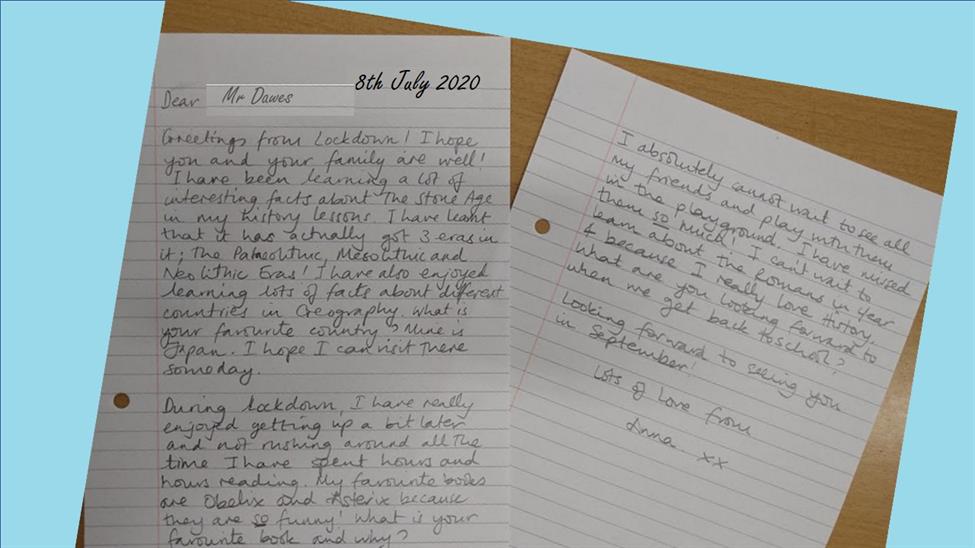 8th July 2020
Dear Mr Dawes
Greetings from Lockdown! I hope
you and your family are well!
I have been learning a lot of
interesting facts about The Stone Age
in my history lessons. I have learnt
that it has actually got 3 eras in
it; The Palaeolithic, Mesolithic and
Neolithic Eras! I have also enjoyed
learning lots of facts about different
countries in Geography. What is
your favourite country? Mine is
Japan. I hope I can visit there
someday.
During lockdown, I have really
enjoyed getting up a bit later
and not rushing around all the
time I have spent hours and
hours reading. My favourite books
are Obelix and Asterix because
they are so funny! What is your
favourite book and why?
I absolutely cannot wait to see all
my friends and play with them
in the playground. I have missed
them so much! I can't wait to
learn about the Romans in Year
4 because I really love History.
What are you looking forward to
when we get back to school?
Looking forward to seeing you
in September!
Lots of love from
Anna xx